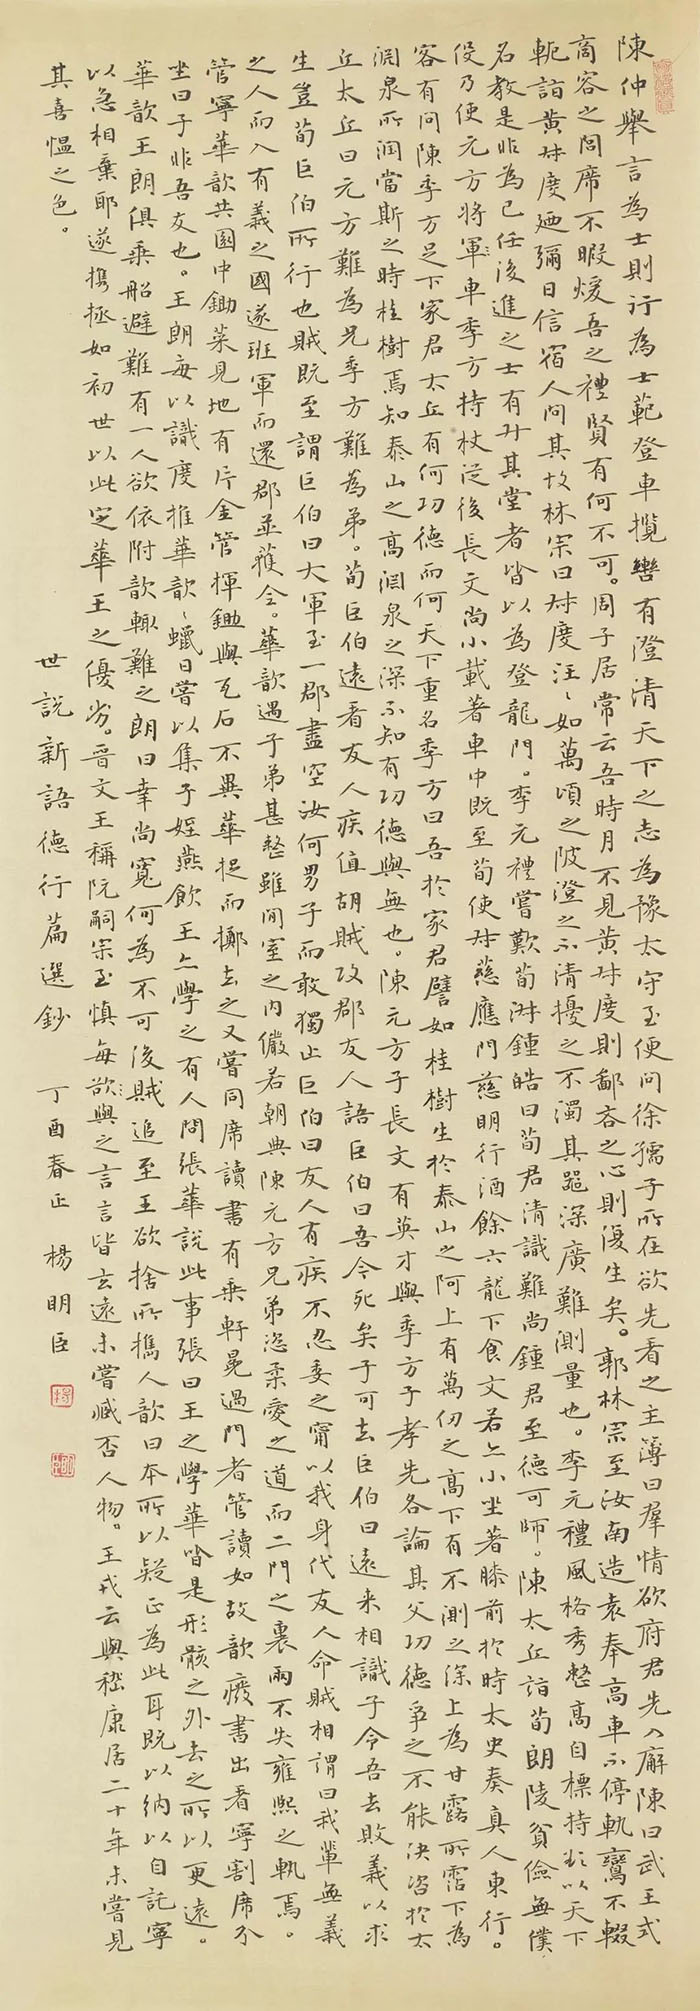 陳仲舉言為士則行為士範登車攬轡有澄清天下之志為豫太守至便問徐孺子所在欲先看之主簿曰羣情欲府君先入廨陳曰武王式
商容之閭席不暇煖吾之禮賢有何不可。周子居常云吾時月不見黃叔度則鄙吝之心則復生矣。郭林宗至汝南造袁奉高車不停軌鸞不輟
軛詣黃叔度廼彌日信宿人問其故林宗曰叔度汪々如萬頃之陂澄之不清擾之不濁其器深廣難測量也。李元禮風格秀整高自標持欲以天下
名教是非為己任後進之士有升其堂者皆以為登龍門。李元禮嘗歎荀淑鍾皓曰荀君清識難尚鍾君至德可師。陳太丘詣荀朗陵貧儉無僕
役乃使元方將軍車季方持杖從後長文尚小載著車中既至荀使叔慈應門慈明行酒餘六龍下食文若亦小坐著膝前於時太史奏真人東行。
客有問陳季方足下家君太丘有何功德而何天下重名季方曰吾於家君譬如桂樹生於泰山之阿上有萬仞之高下有不測之深上為甘露所霑下為
淵泉所潤當斯之時桂樹焉知泰山之高淵泉之深不知有功德與無也。陳元方子長文有英才與季方子孝先各論其父功德爭之不能決咨於太
丘太丘曰元方難為兄季方難為弟。荀巨伯遠看友人疾值胡賊攻郡友人語巨伯曰吾今死矣子可去巨伯曰遠来相識子令吾去敗義以求
生豈荀巨伯所行也賊既至謂巨伯曰大軍至一郡盡空汝何男子而敢獨止巨伯曰友人有疾不忍委之甯以我身代友人命賊相謂曰我輩無義
之人而入有義之國遂班軍而還郡並獲全。華歆遇子弟甚整雖閒室之內儼若朝典陳元方兄弟恣柔愛之道而二門之裏兩不失雍熙之軌焉。
管寧華歆共園中鋤菜見地有片金管揮鋤與瓦石不異華捉而擲去之又嘗同席讀書有乗軒冕過門者管讀如故歆廢書出看寧割席分
坐曰子非吾友也。王朗每以識度推華歆々蠟日嘗以集子姪燕飲王亦學之有人問張華說此事張曰王之學華皆是形骸之外去之所以更遠。
華歆王朗俱乗船避難有一人欲依附歆輒難之朗曰幸尚寬何為不可後賊追至王欲捨所攜人歆曰本所以疑正為此耳既以納以自託寧
以急相棄耶遂攜拯如初世以此定華王之優劣。晋文王稱阮嗣宗至慎每欲與之言言皆玄遠未嘗臧否人物。王戎云與嵇康居二十年未嘗見
其喜愠之色。
世說新語德行篇選鈔　丁酉春正　楊明臣